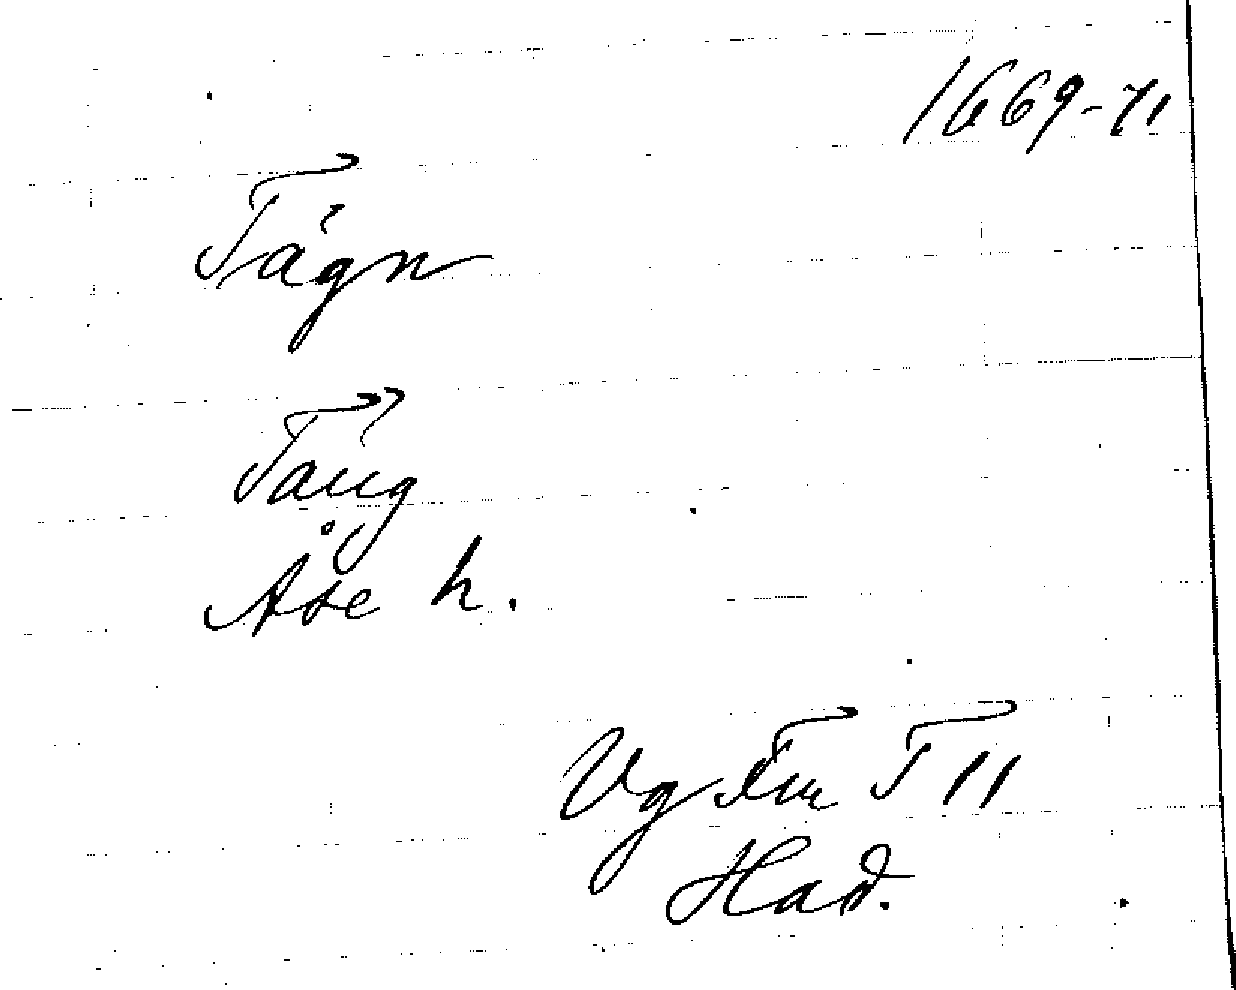 1669-71
Tågn
Tång
Åse h.
Vg Tm T 11
Had.